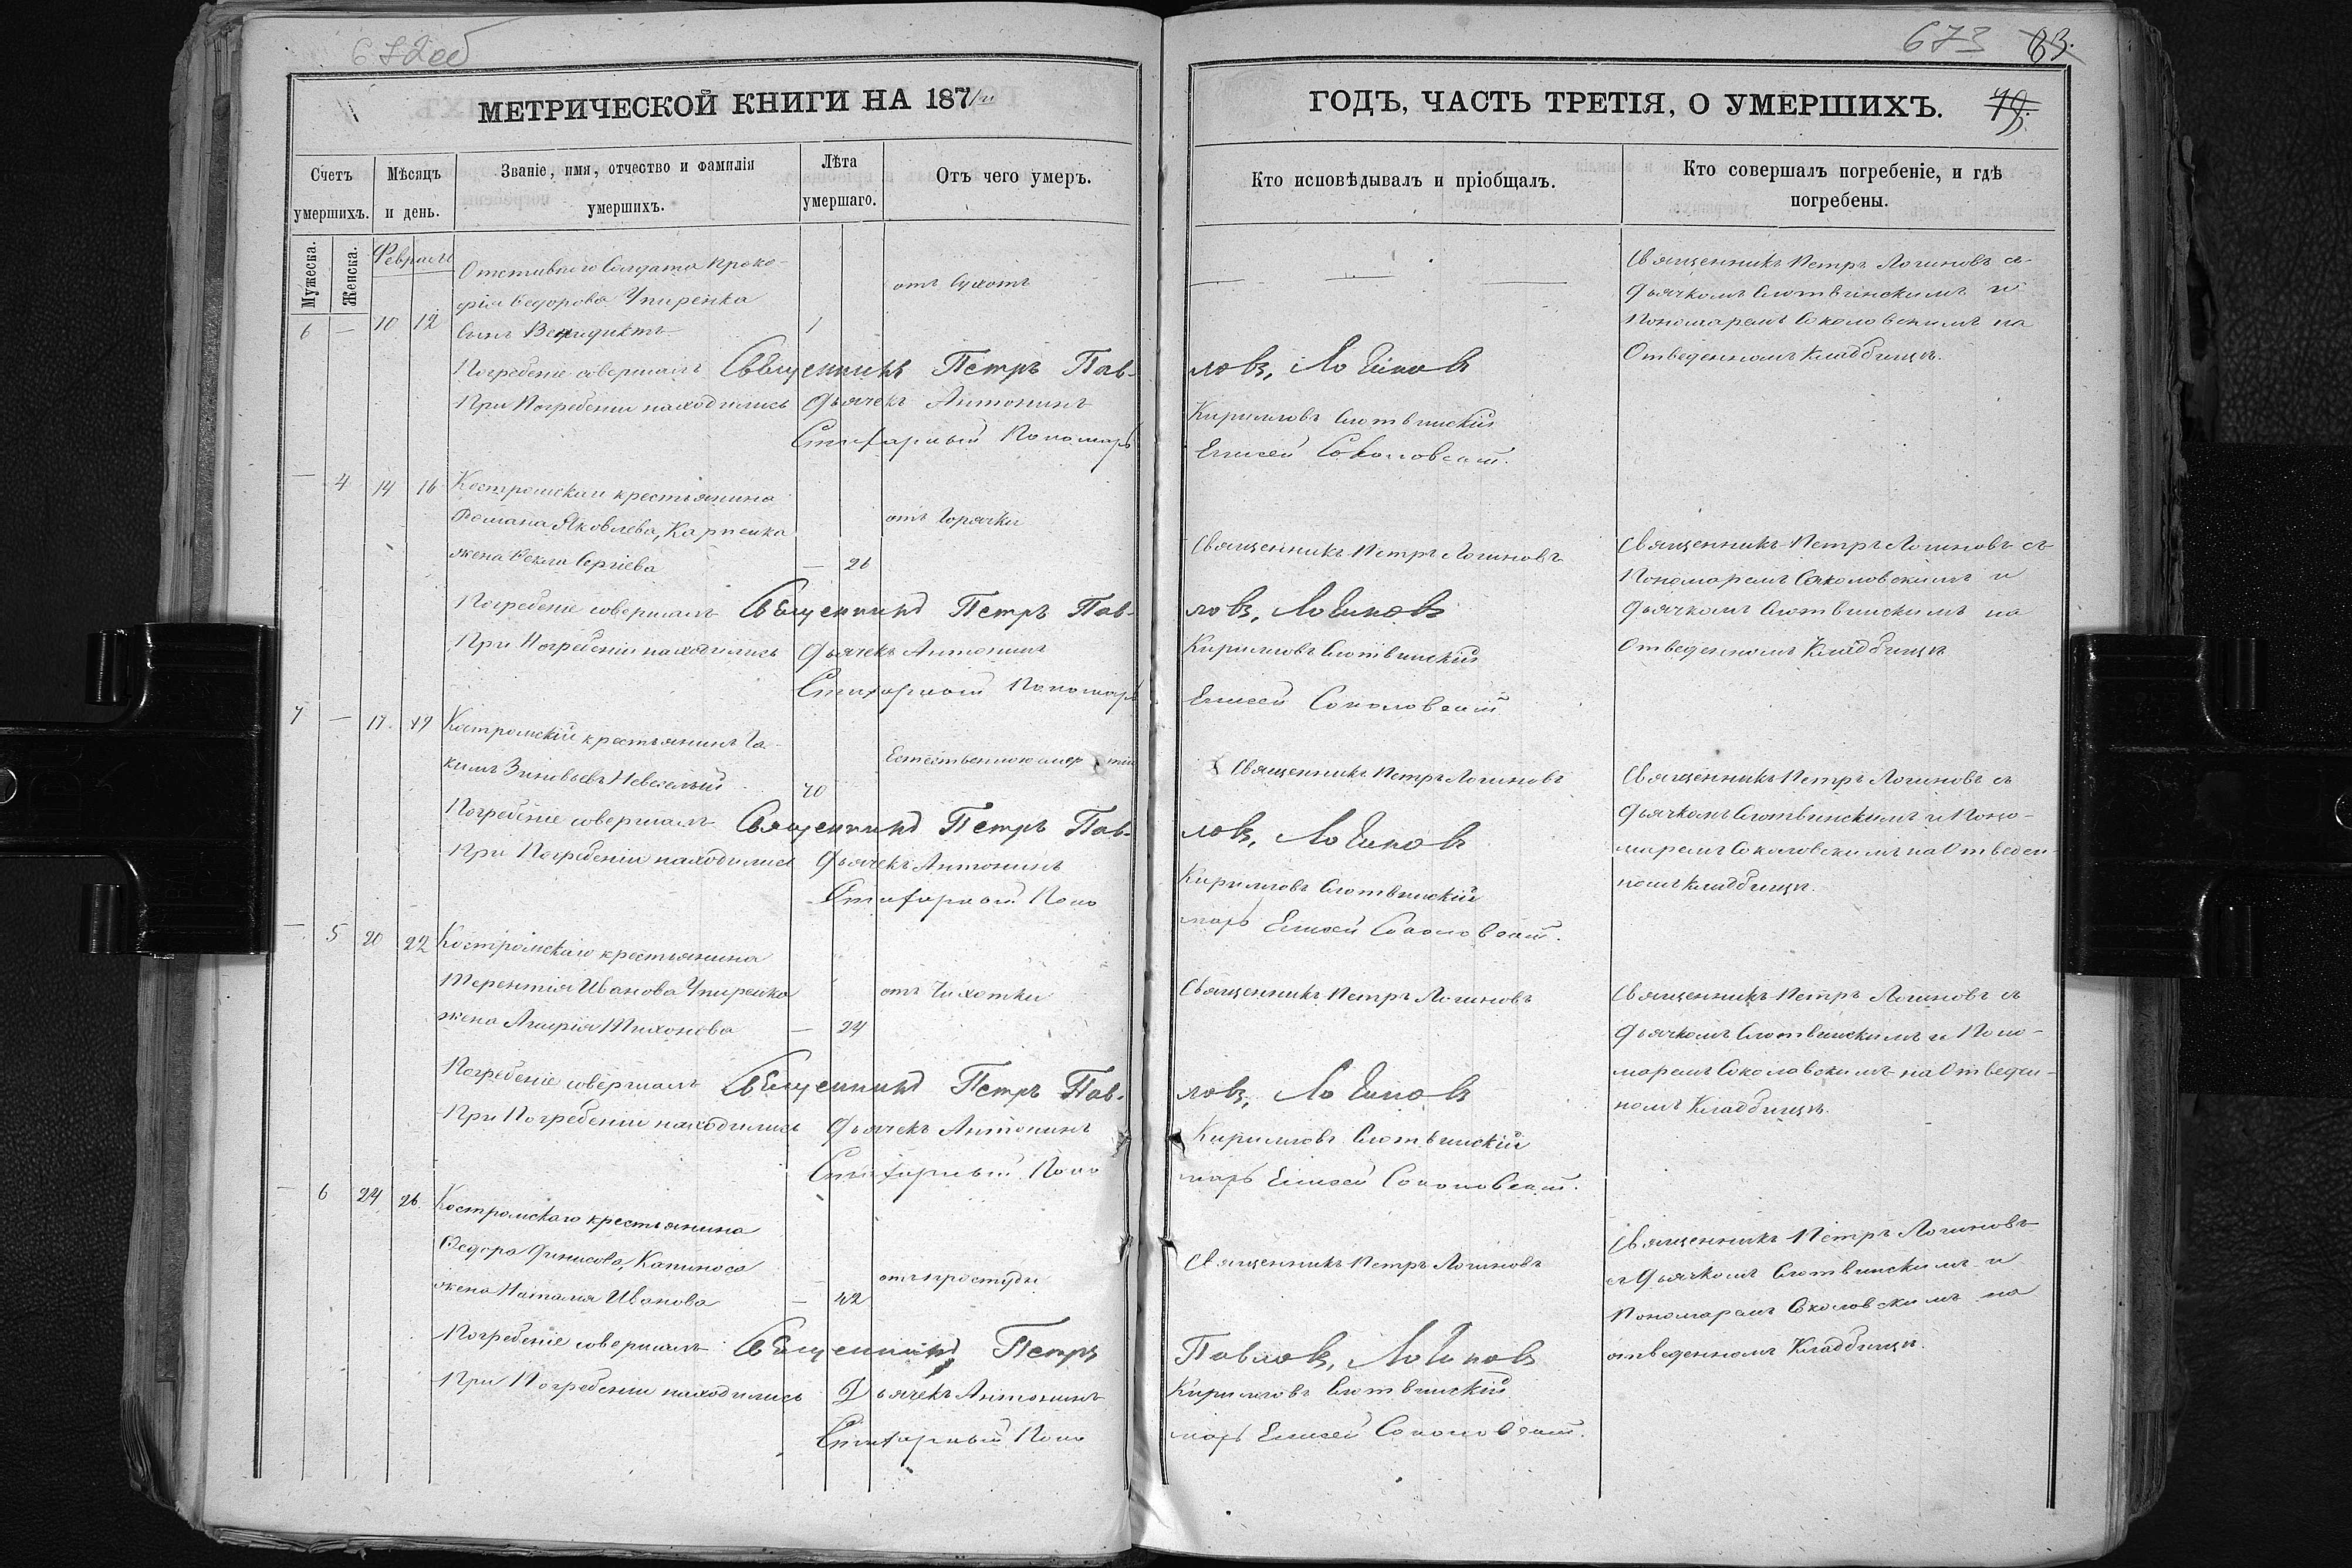 672об
МЕТРИЧЕСКОЙ КНИГИ НА 187
Счетъ умершихъ.
Мѣсяцъ и день.
Званіе, имя, отчество и фамилія умершихъ.
Лѣта умершаго.
Отъ чего умеръ.
Мужеска.
Женска.
Февраль
Отставнаго Солдата Проко-
фія Ѳедорова Упиренка
6 — 10 12 сынъ Венидиктъ 1
отъ Сухотъ
Погребеніе совершалъ Священникъ Петръ Пав-
При Погребеніи находились Дьячекъ Антонинъ
Стихарный Пономарь
— 4 14 16 Костромскаго крестьянина
Романа Яковлева, Карпенка
отъ Горячки
жена Ѳекла Сергіева — 26
Погребеніе совершалъ Священникъ Петръ Пав-
При Погребеніи находились Дьячекъ Антонинъ
Стихарный Пономарь
7 — 17 19 Костромскій крестьянинъ Іа-
кимъ Зиновьевъ Невеселый 70
Естественною смертію
Погребеніе совершалъ Священникъ Петръ Пав-
При Погребеніи находились Дьячекъ Антонинъ
Стихарный Поно
— 5 20 22 Костромскаго крестьянина
Терентія Иванова Упиренка
отъ Чихотки
жена Тихонова — 24
Погребеніе совершалъ Священникъ Петръ Пав-
При Погребеніи находились Дьячекъ Антонинъ
Стихарный Поно
— 6 24 26 Костромскаго крестьянина
Ѳедора Финисова, Капиноса
отъ простуды
жена Наталія Иванова — 42
Погребеніе совершалъ Священникъ Петръ
При Погребеніи находились Дьячекъ Антонинъ
Стихарный Поно
673 83.
ГОДЪ, ЧАСТЬ ТРЕТІЯ, О УМЕРШИХЪ. 79.
Кто исповѣдывалъ и пріобщалъ.
Кто совершалъ погребеніе, и гдѣ погребены.
Священникъ Петръ Логиновъ съ
Дьячкомъ Слотвинскимъ и
Пономаремъ Соколовскимъ на
Отведенномъ Кладбищѣ.
ловъ, Логиновъ
Кирилловъ Слотвинскій
Елисей Соколовскій.
Священникъ Петръ Логиновъ
Священникъ Петръ Логиновъ съ
Пономаремъ Соколовскимъ и
Дьячкомъ Слотвинскимъ на
Отведенномъ Кладбищѣ
ловъ, Логиновъ
Кирилловъ Слотвинскій
Елисей Соколовскій
Священникъ Петръ Логиновъ
Священникъ Петръ Логиновъ съ
Дьячкомъ Слотвинскимъ и Поно-
маремъ Соколовскимъ на Отведен-
номъ Кладбищѣ.
ловъ, Логиновъ
Кирилловъ Слотвинскій
марь Елисей Соколовскій.
Священникъ Петръ Логиновъ
Священникъ Петръ Логиновъ съ
Дьячкомъ Слотвинскимъ и Поно-
маремъ Соколовскимъ на Отведен-
номъ Кладбищѣ.
ловъ, Логиновъ
Кирилловъ Слотвинскій
марь Елисей Соколовскій.
Священникъ Петръ Логиновъ
Священникъ Петръ Логиновъ
съ Дьячкомъ Слотвинскимъ и
Пономаремъ Соколовскимъ на
отведенномъ Кладбищѣ.
Павловъ, Логиновъ
Кирилловъ Слотвинскій
марь Елисей Соколовскій.